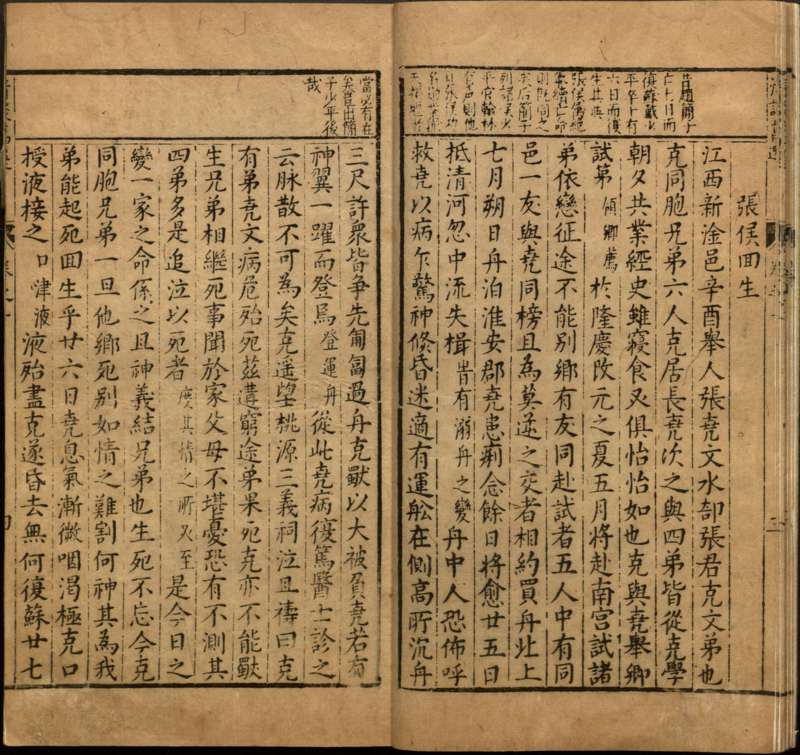 昔趙簡子
亡七日而
復蘇戴少
平卒十有
六日而復
生其與
張侯偽絕
則既同之
矣后簡子
列諸侯少
平官翰林
日張侯功
張侯回生
江西新淦邑辛酉舉人張堯文水部張君克文弟也
克同胞兄弟六人克居長堯次之與四弟皆從克學
朝夕共業經史雖寢食又俱怡怡如也克與堯舉鄉
試第傾鄉薦於隆慶改元之夏五月將赴南宮試諸
弟依戀征途不能別鄉有友同赴試者五人中有同
邑一友與堯同榜且為莫逆之交者相約買舟北上
七月朔日舟泊淮安郡堯患痢念餘日將愈廿五日
抵清河忽中流失楫昔有溺舟之變舟中人恐怖呼
救堯以病乍驚神倏昏迷適有運舩在側高所沉舟
當必有在
矣豈出簡
子少平後
哉
三尺許眾皆爭先匍匐過舟克獸以大被負堯若有
神翼一躍而登焉登運舟從此堯病復篤醫士診之
云脉散不可為矣克遥望桃源三義祠泣且禱曰克
有弟堯文病危殆死茲遘窮途弟果死克亦不能獸
生兄弟相繼死事聞於家父母不堪憂恐有不測其
四弟多是追泣以死者度其情之所必至是今日之
變一家之命係之且神義結兄弟也生死不忘今克
同胞兄弟一旦他鄉死別如情之難割何神其為我
弟能起死回生乎廿六日堯息氣漸微咽渴極克口
授液接之口津液液殆盡克遂昏去無何復蘇廿七